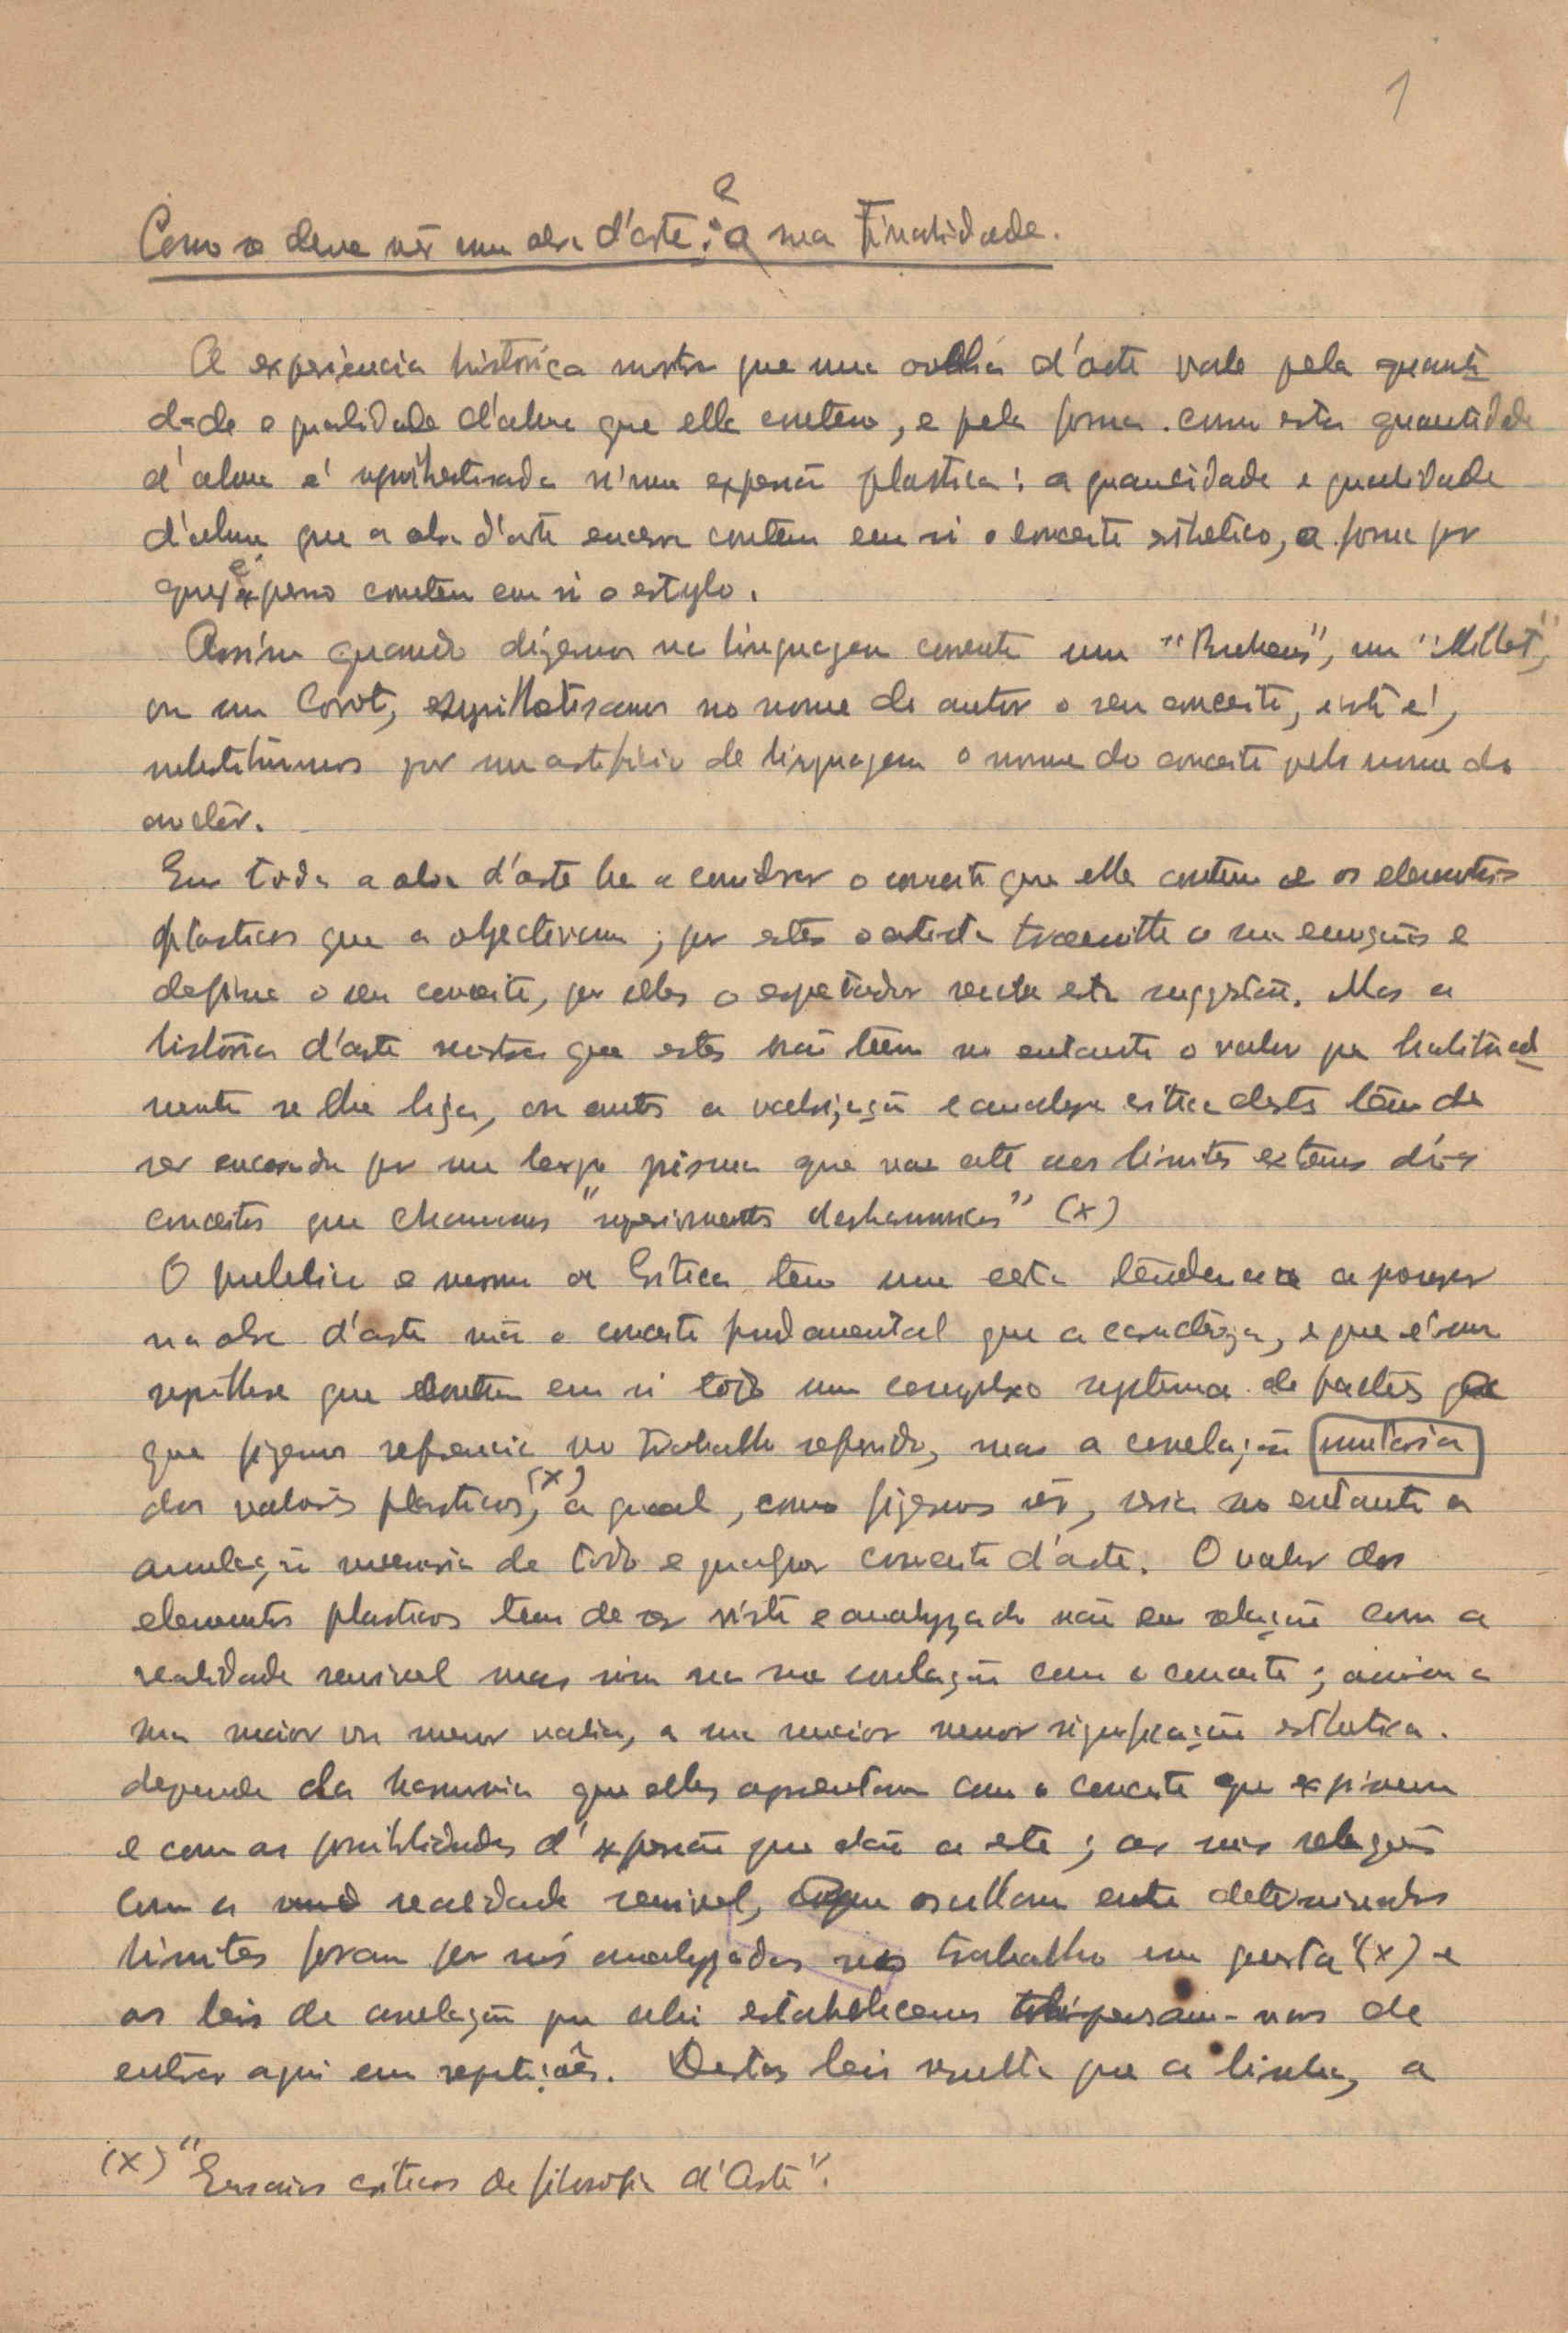 1
Como se deve vêr uma obra d'arte: e a sua Finalidade.
A experiencia histórica mostra que uma obra d'arte vale pela quanti
dade e qualidade d'alma que ella contem, e pela forma como esta quantidade
d'alma é synthetisada n'uma expressão plastica: a quantidade e qualidade
d'alma que a obra d'arte encerra contem em si o conceito esthetico, a forma por
que é expresso contem em si o estylo.
Assim quando dizemos na linguagem corrente um "Rubens", um "Millet",
ou um Corot, synthetisamos no nome do autor o seu conceito, isto é,
substituimos por um artificio de linguagem o nome do conceito pelo nome do
auctor.
Em toda a obra d'arte ha a considerar o conceito que ella contem e os elementos
plasticos que a objectivam; por estes o artista transmitte a sua emoção e
define o seu conceito, por elles o espetador recebe esta suggestão. Mas a
história d'arte mostra que estes não teem no entanto o valor que habitual
mente se lhe liga, ou antes a valorização e analyse critica destes tem de
ser encarada por um largo prisma que vae até aos limites extremos dos
conceitos que chamamos (x)
O publico e mesmo a Critica tem uma certa tendencia a
na obra d'arte não o conceito fundamental que a caracteriza, e que é uma
synthese que contem em si todo um complexo systema de factos
que fizemos referencia no trabalho referido, mas a correlação mutaria
dos valores plasticos, (x) a qual, como fizemos vêr, seria no entanto a
anulação necessaria de todo e qualquer conceito d'arte. O valor dos
elementos plasticos tem de ser visto e analyzado não em relação com a
realidade sensivel mas sim na sua correlação com o conceito; assim a
sua maior ou menor valia, a sua maior menor significação esthetica
depende da harmonia que elles apresentam com o conceito que exprimem
e com as possibilidades d'expressão que dão a este; as suas relações
com a realidade sensivel, oscillam entre determinados
limites foram por nós analyzadas no trabalho em (x) e
as leis de correlação que alli estabelecemos dispensam-nos de
entrar aqui em repetições. Destas leis resulta que a linha, a
(x) "Ensaios criticos de filosofia d'Arte".